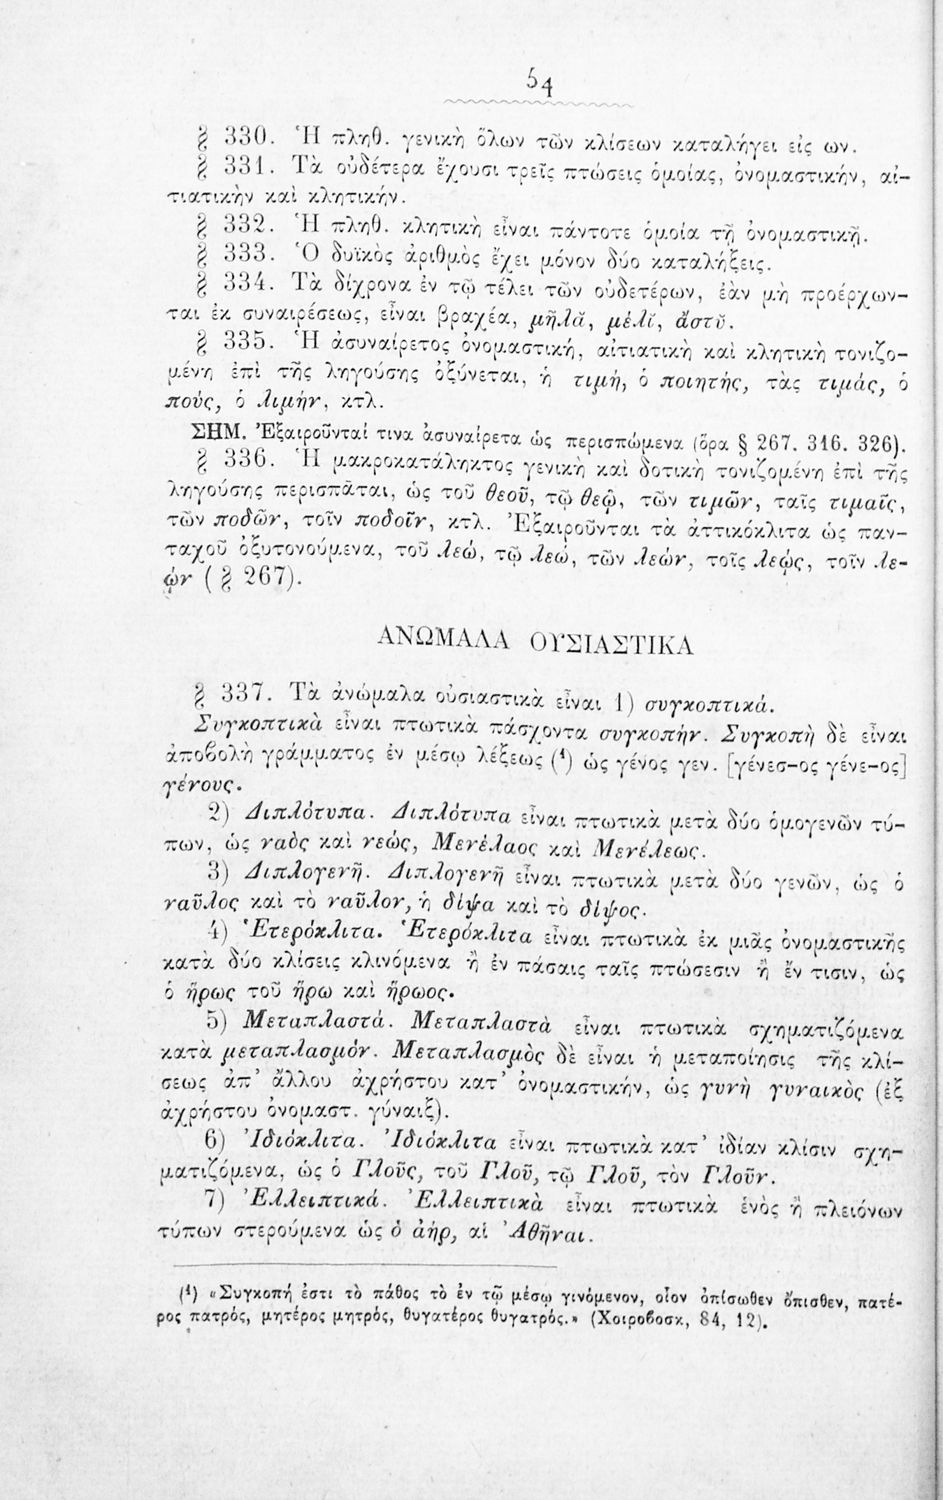 54
§ 330. Ἡ πληθ. γενικὴ ὅλων τῶν κλίσεων καταλήγει εἰς ων.
§ 331. Τὰ οὐδέτερα ἔχουσι τρεῖς πτώσεις ὁμοίας, ὀνομαστικήν, αἰ-
τιατικὴν καὶ κλητικήν.
§ 332. Ἡ πληθ. κλητικὴ εἶναι πάντοτε ὁμοία τῇ ὀνομαστικῇ.
§ 333. Ὁ δυϊκὸς ἀριθμὸς ἔχει μόνον δύο καταλήξεις.
§ 334. Τὰ δίχρονα ἐν τῷ τέλει τῶν οὐδετέρων, ἐὰν μὴ προέρχων-
ται ἐκ συναιρέσεως, εἶναι βραχέα, μῆλᾰ, μέλῐ, ἄστῠ.
§ 335. Ἡ ἀσυναίρετος ὀνομαστική, αἰτιατικὴ καὶ κλητικὴ τονιζο-
μένη ἐπὶ τῆς ληγούσης ὀξύνεται, ἡ τιμή, ὁ ποιητής, τὰς τιμάς, ὁ
πούς, ὁ λιμήν, κτλ.
ΣΗΜ. Ἐξαιροῦνταί τινα ἀσυναίρετα ὡς περισπώμενα (ὅρα § 267. 316. 326).
§ 336. Ἡ μακροκατάληκτος γενικὴ καὶ δοτικὴ τονιζομένη ἐπὶ τῆς
ληγούσης περισπᾶται, ὡς τοῦ θεοῦ, τῷ θεῷ, τῶν τιμῶν, ταῖς τιμαῖς,
τῶν ποδῶν, τοῖν ποδοῖν, κτλ. Ἐξαιροῦνται τὰ ἀττικόκλιτα ὡς παν-
ταχοῦ ὀξυτονούμενα, τοῦ λεώ, τῷ λεῴ, τῶν λεών, τοῖς λεῴς, τοῖν λε-
ῴν (§ 267).
ΑΝΩΜΑΛΑ ΟΥΣΙΑΣΤΙΚΑ
§ 337. Τὰ ἀνώμαλα οὐσιαστικὰ εἶναι 1) συγκοπτικά.
Συγκοπτικὰ εἶναι πτωτικὰ πάσχοντα συγκοπήν. Συγκοπὴ δὲ εἶναι
ἀποβολὴ γράμματος ἐν μέσῳ λέξεως (¹) ὡς γένος γεν. [γένεσ-ος γένε-ος]
γένους.
2) Διπλότυπα. Διπλότυπα εἶναι πτωτικὰ μετὰ δύο ὁμογενῶν τύ-
πων, ὡς ναὸς καὶ νεώς, Μενέλαος καὶ Μενέλεως.
3) Διπλογενῆ. Διπλογενῆ εἶναι πτωτικὰ μετὰ δύο γενῶν, ὡς ὁ
ναῦλος καὶ τὸ ναῦλον, ἡ δίψα καὶ τὸ δίψος.
4) Ἑτερόκλιτα. Ἑτερόκλιτα εἶναι πτωτικὰ ἐκ μιᾶς ὀνομαστικῆς
κατὰ δύο κλίσεις κλινόμενα ἢ ἐν πάσαις ταῖς πτώσεσιν ἢ ἔν τισιν, ὡς
ὁ ἥρως τοῦ ἥρω καὶ ἥρωος.
5) Μεταπλαστά. Μεταπλαστὰ εἶναι πτωτικὰ σχηματιζόμενα
κατὰ μεταπλασμόν. Μεταπλασμὸς δὲ εἶναι ἡ μεταποίησις τῆς κλί-
σεως ἀπ' ἄλλου ἀχρήστου κατ' ὀνομαστικήν, ὡς γυνὴ γυναικὸς (ἐξ
ἀχρήστου ὀνομαστ. γύναιξ).
6) Ἰδιόκλιτα. Ἰδιόκλιτα εἶναι πτωτικὰ κατ' ἰδίαν κλίσιν σχη-
ματιζόμενα, ὡς ὁ Γλοῦς, τοῦ Γλοῦ, τῷ Γλοῦ, τὸν Γλοῦν.
7) Ἐλλειπτικά. Ἐλλειπτικὰ εἶναι πτωτικὰ ἑνὸς ἢ πλειόνων
τύπων στερούμενα ὡς ὁ ἀήρ, αἱ Ἀθῆναι.
(¹) «Συγκοπή ἐστι τὸ πάθος τὸ ἐν τῷ μέσῳ γινόμενον, οἷον ὀπίσωθεν ὄπισθεν, πατέ-
ρος πατρός, μητέρος μητρός, θυγατέρος θυγατρός.» (Χοιροβοσκ, 84, 12).